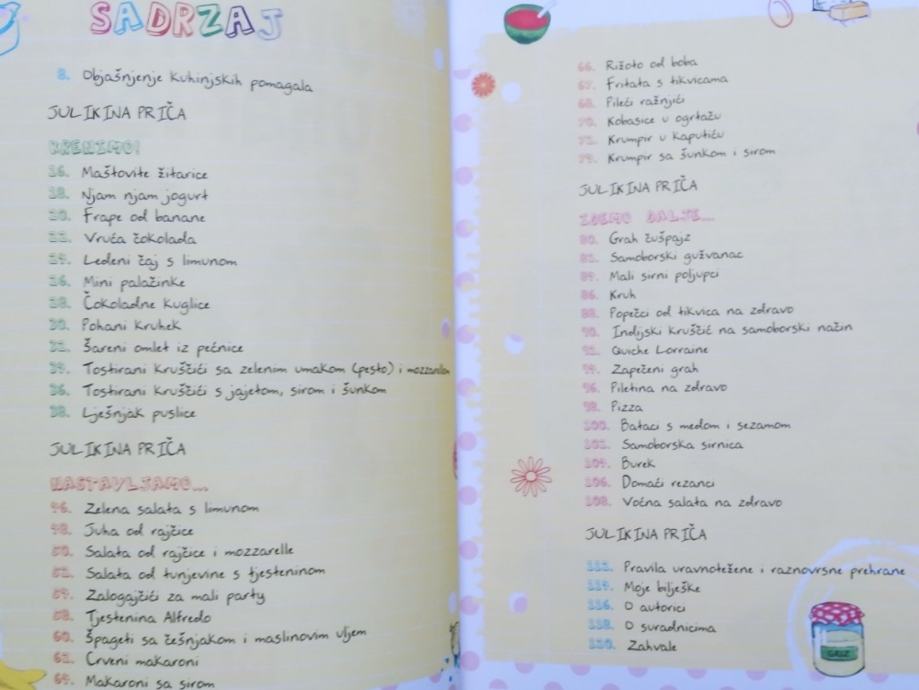 SADRZAJ
8. Objašnjenje kuhinjskih pomagala
JULIKINA PRIČA
KRENIMO!
16. Maštovite žitarice
18. Njam njam jogurt
20. Frape od banane
22. Vruća čokolada
24. Ledeni čaj s limunom
26. Mini palažinke
28. Čokoladne kuglice
30. Pohani kruhek
32. Šareni omlet iz pećnice
34. Tostirani kruščići sa zelenim umakom (pesto) i mozzarellom
36. Tostirani kruščići s jajetom, sirom i šunkom
38. Lješnjak puslice
JULIKINA PRIČA
NASTAVLJAMO...
46. Zelena salata s limunom
48. Juha od rajčice
50. Salata od rajčice i mozzarelle
52. Salata od tunjevine s tjesteninom
54. Zalogajčići za mali party
58. Tjestenina Alfredo
60. Špageti sa češnjakom i maslinovim uljem
62. Crveni makaroni
64. Makaroni sa sirom
66. Rižoto od boba
67. Fritata s tikvicama
68. Pileći ražnjići
70. Kobasice u ogrtaču
72. Krumpir u kaputiću
74. Krumpir sa šunkom i sirom
JULIKINA PRIČA
IDEMO DALJE...
80. Grah žušpajz
82. Samoborski gužvanac
84. Mali sirni poljupci
86. Kruh
88. Popečci od tikvica na zdravo
90. Indijski kruščić na samoborski način
92. Quiche Lorraine
94. Zapečeni grah
96. Piletina na zdravo
98. Pizza
100. Bataci s medom i sezamom
102. Samoborska sirnica
104. Burek
106. Domaći rezanci
108. Voćna salata na zdravo
JULIKINA PRIČA
112. Pravila uravnotežene i raznovrsne prehrane
114. Moje bilješke
116. O autorici
118. O suradnicima
120. Zahvale
GRIZ